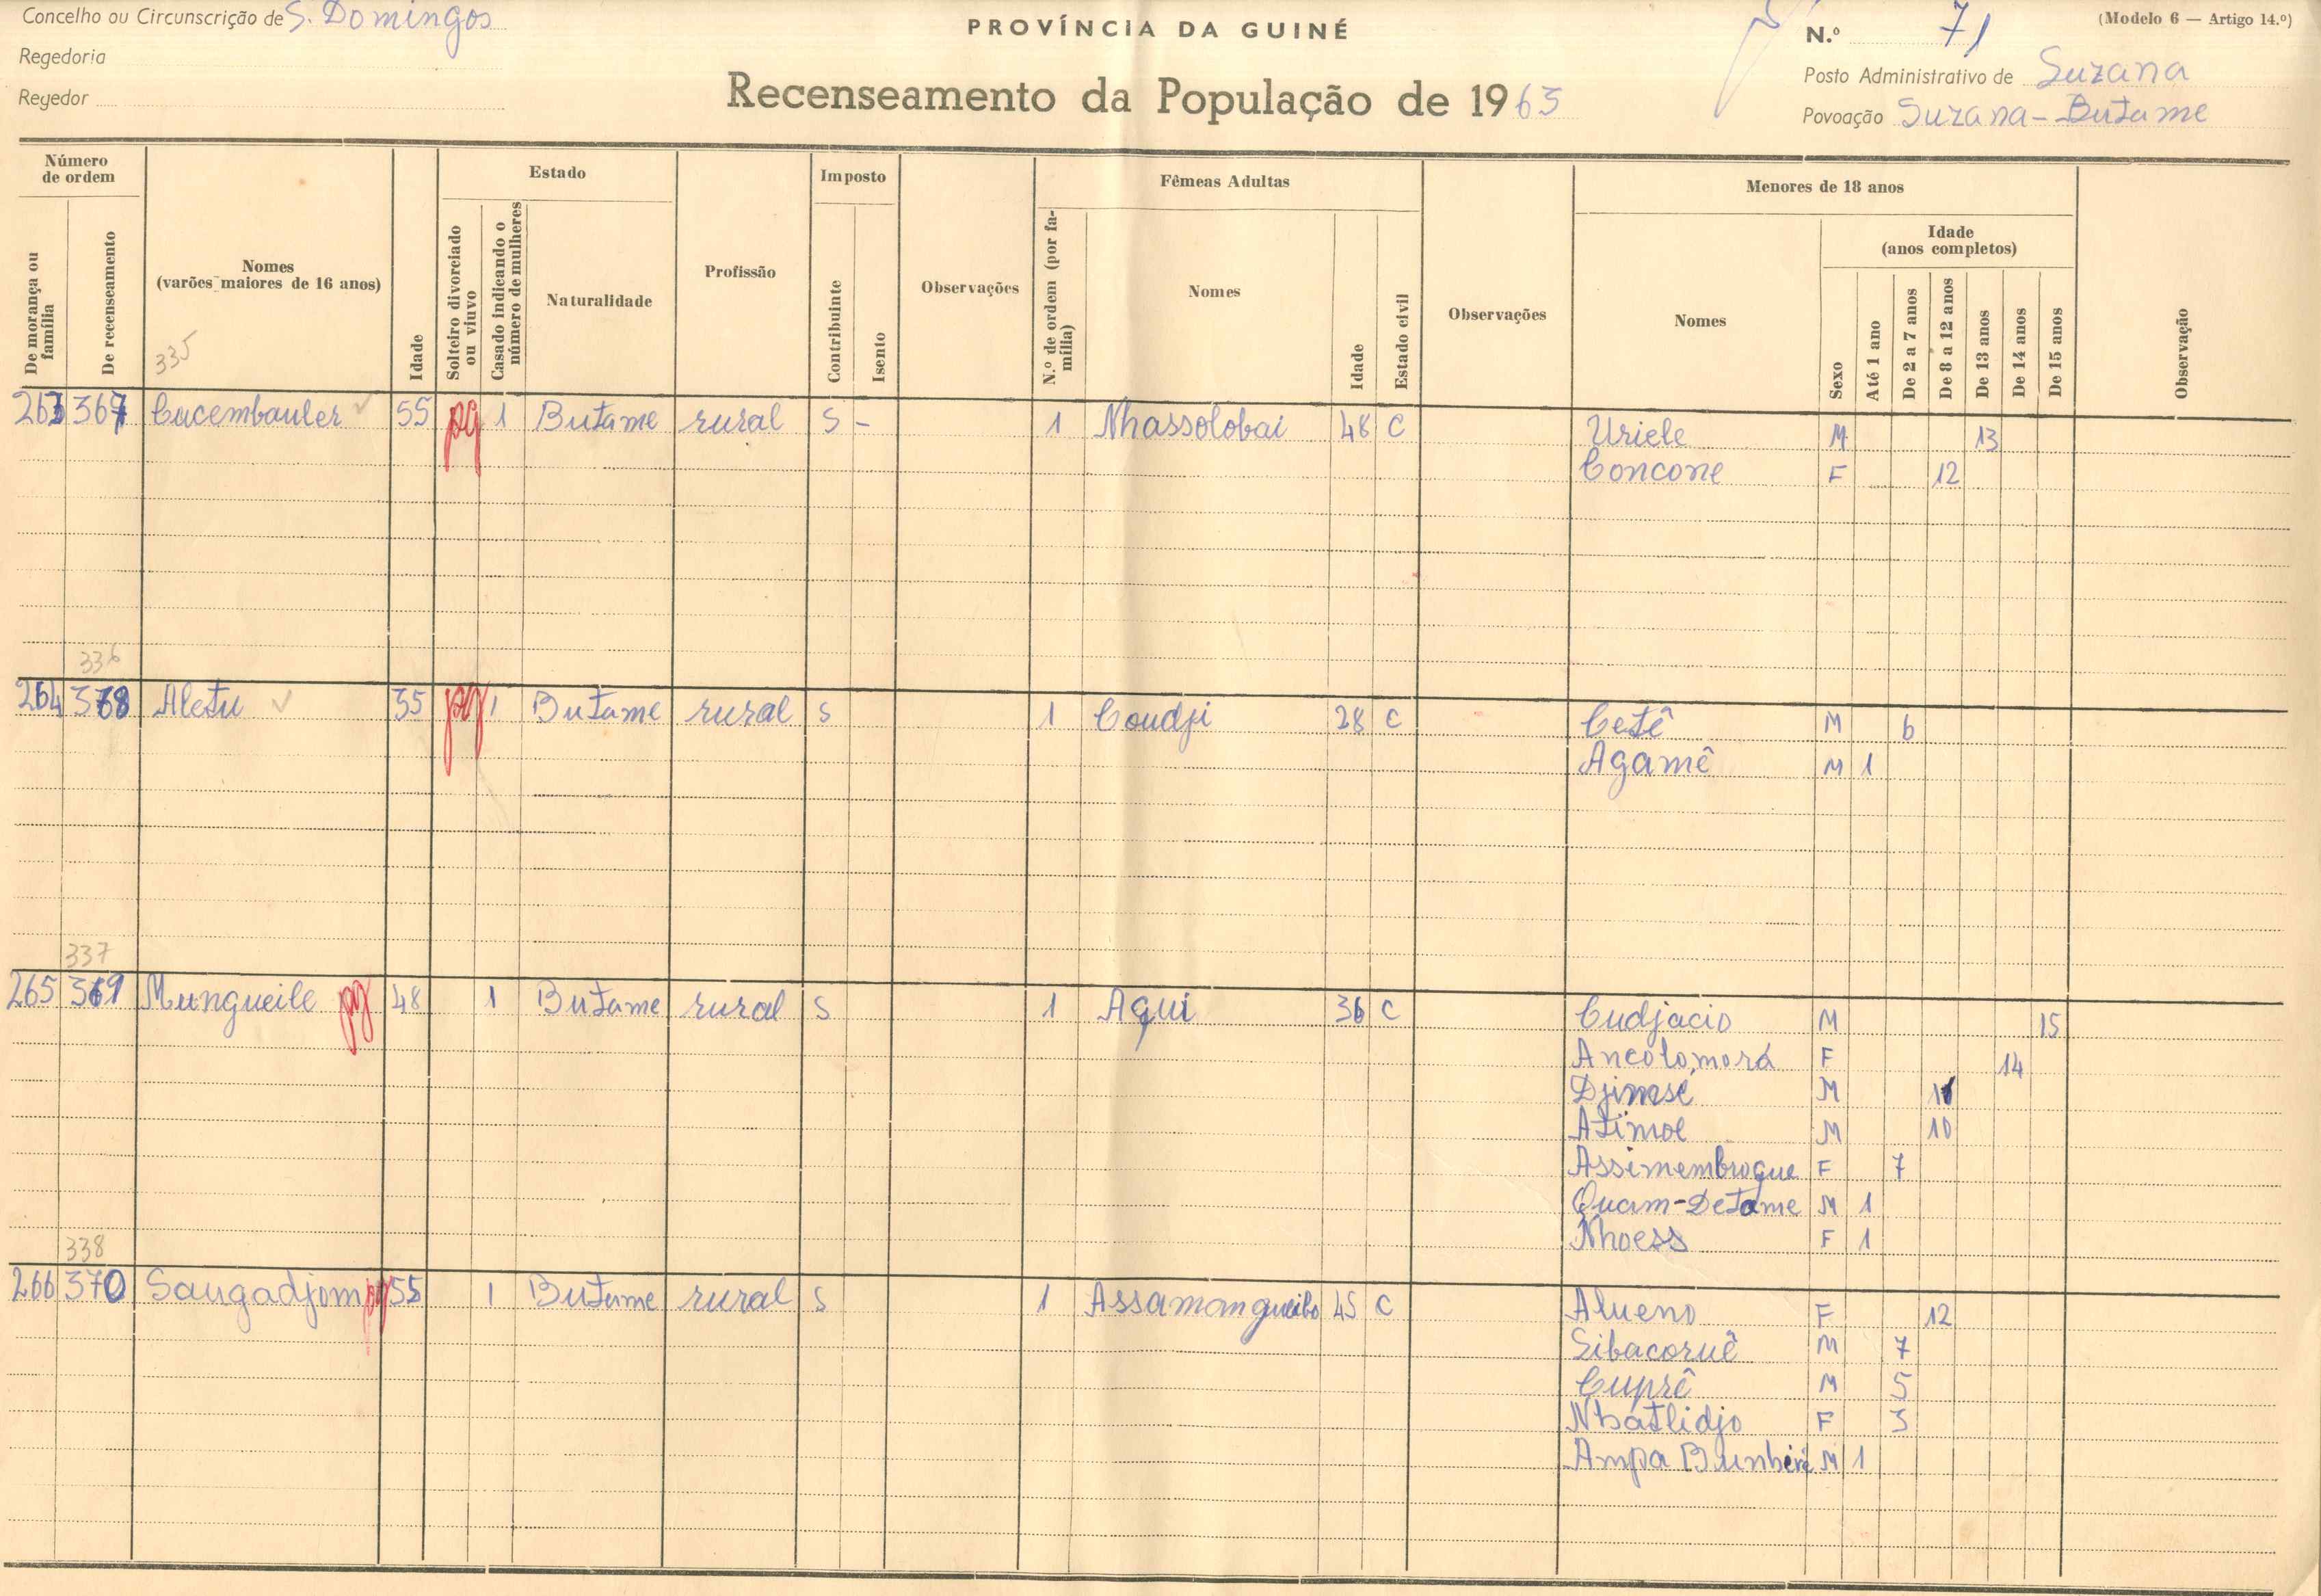 Concelho ou Circunscrição de S. Domingos
Regedoria
Regedor
PROVÍNCIA DA GUINÉ
Recenseamento da População de 1963
N.º 71
(Modelo 6 — Artigo 14.º)
Posto Administrativo de Suzana
Povoação Suzana - Butame
Número de ordem
De morança ou família
De recenseamento
Nomes (varões maiores de 16 anos)
Idade
Estado
Solteiro divorciado ou viuvo
Casado indicando o número de mulheres
Naturalidade
Profissão
Imposto
Contribuinte
Isento
Observações
Fêmeas Adultas
N.º de ordem (por família)
Nomes
Idade
Estado civil
Observações
Menores de 18 anos
Nomes
Sexo
Idade (anos completos)
Até 1 ano
De 2 a 7 anos
De 8 a 12 anos
De 13 anos
De 14 anos
De 15 anos
Observação
335
263 367 Cacembauler 55 pg 1 Butame rural S - 1 Nhassolobai 48 C Uriele M 13
Concone F 12
336
264 368 Aletu 35 pg 1 Butame rural S 1 Coudji 28 C Cetê M 6
Agamê M 1
337
265 369 Mungueile pg 48 1 Butame rural S 1 Aqui 36 C Cudjacio M 15
Ancolomorá F 14
Djimsé M 11
Atimol M 10
Assimembuque F 7
Quam-Detame M 1
Nhoess F 1
338
266 370 Saugadjom pg 55 1 Butame rural S 1 Assamangueibo 45 C Alueno F 12
Sibacoruê M 7
Cuprê M 5
Nbatlidjo F 3
Ampa Bunberé M 1